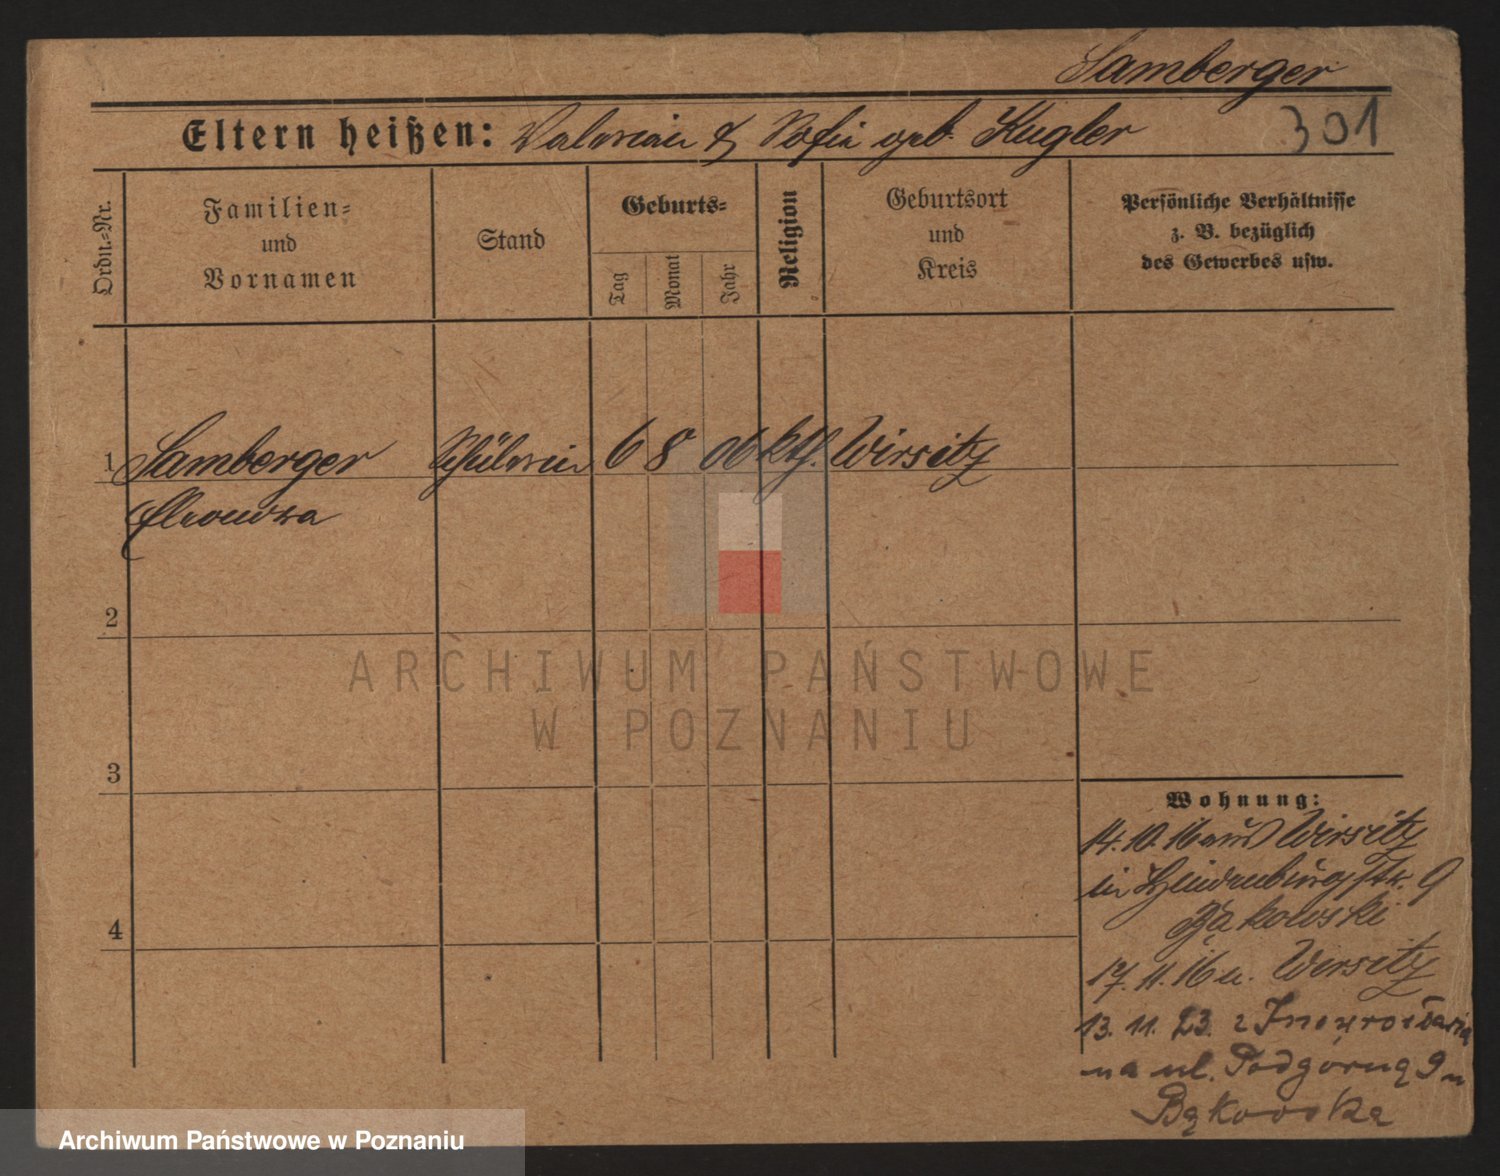 Samberger
Eltern heißen: Valerian & Sofie geb. Kugler 301
Ordn.=Nr.
Familien=
und
Vornamen
Stand
Geburts=
Tag
Monat
Jahr
Religion
Geburtsort
und
Kreis
Persönliche Verhältnisse
z. B. bezüglich
des Gewerbes usw.
1 Samberger Schülerin 6 8 06 kth. Wirsitz
Eleonora
2
3
4
Wohnung:
14. 10. 16 aus Wirsitz
in Hindenburgstr. 9
Bąkowski
17. 11. 16 n. Wirsitz
13. 11. 23. z Inowrocławia
na ul. Podgórną 9
Bąkowska
ARCHIWUM PAŃSTWOWE
W POZNANIU
Archiwum Państwowe w Poznaniu